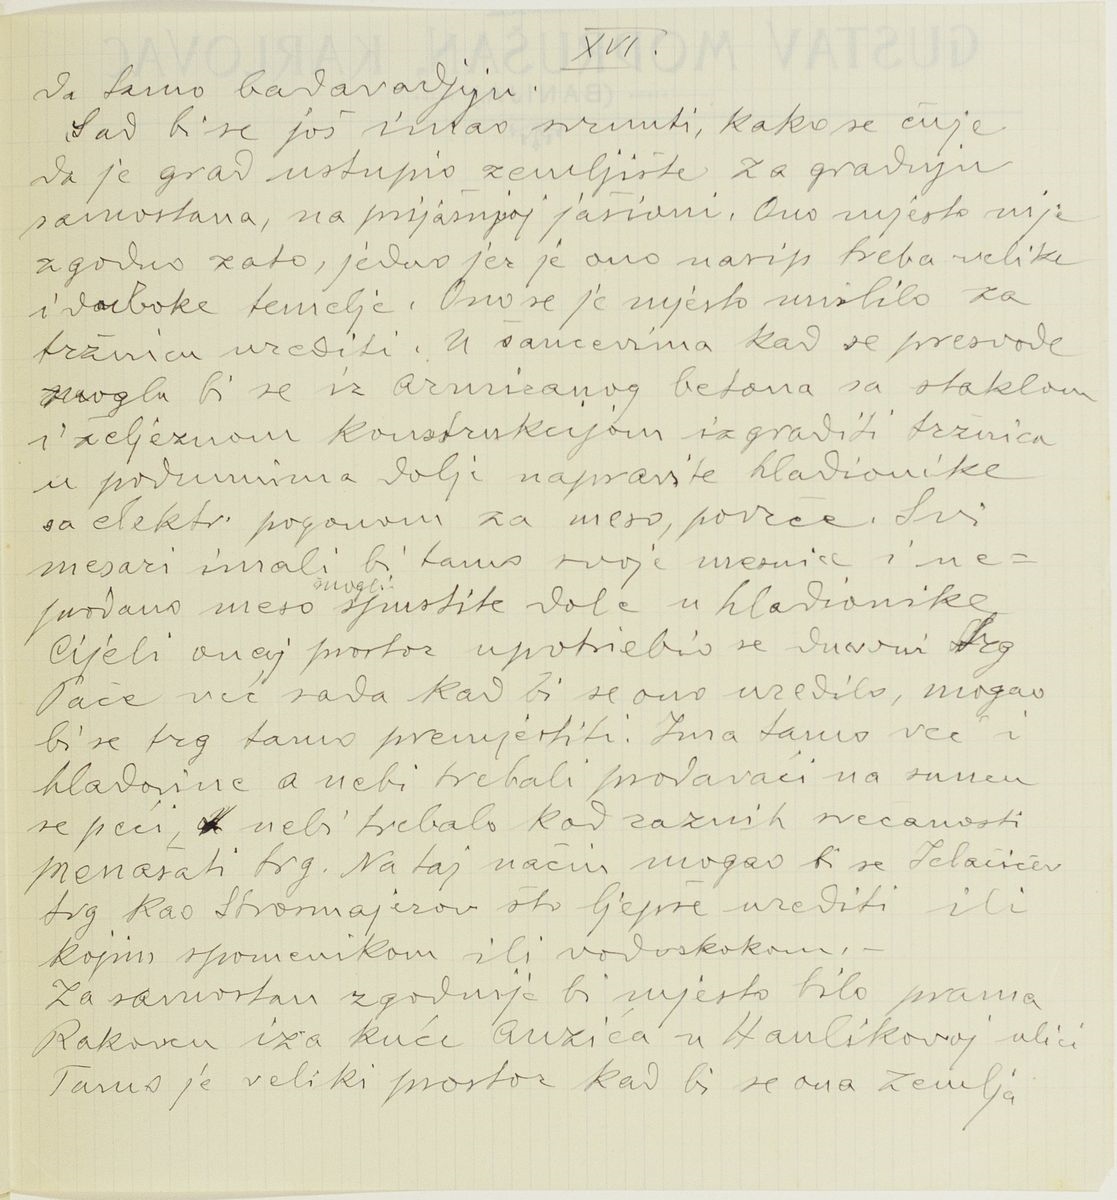 XVI.
da tamo badavadjiju.
Sad bi se još imao svrnuti, kako se čuje
da je grad ustupio zemljište za gradnju
samostana, na prijašnjoj jašioni. Ono mjesto nije
zgodno zato, jedno jer je ono nasip treba velike
i duboke temelje. Ono se je mjesto mislilo za
tržnicu urediti. U šancevima kad se presvode
moglu bi se iz armiranog betona sa staklom
i željeznom konstrukcijom izgraditi tržnica
u podrumima dolje napravite hladionike
sa elektr. pogonom za meso, povrće. Svi
mesari imali bi tamo svoje mesnice i ne=
prodano meso mogli spustite dole u hladionike
Cijeli onaj prostor upotriebio se dnevni trg
Pače već sada kad bi se ono uredilo, mogao
bi se trg tamo premjestiti. Ima tamo već i
hladovine a nebi trebali prodavaći na suncu
se peći, nebi trebalo kod raznih svečanosti
prenašati trg. Na taj način mogao bi se Jelačićev
trg kao Strosmajerov što ljepše urediti ili
kojim spomenikom ili vodoskokom. –
Za samostan zgodnije bi mjesto bilo prama
Rakovcu iza kuće Anzića u Haulikovoj ulici
Tamo je veliki prostor kad bi se ona zemlja
GUSTAV MODRUŠAN, KARLOVAC
(BANIJA)